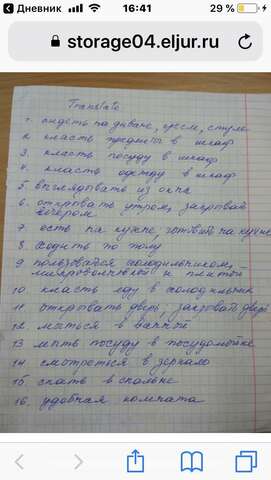 Дневник
16:41
29 %
storage04.eljur.ru
Translate
1. сидеть на диване, кресле, стуле
2. класть предметы в шкаф
3. класть посуду в шкаф
4. класть одежду в шкаф
5. выглядывать из окна
6. открывать утром, закрывать
вечером
7. есть на кухне, готовить на кухне
8 ходить по полу
9 пользоваться холодильником,
микроволновкой и плитой
10 класть еду в холодильник
11 открывать дверь, закрывать дверь
12 мыться в ванной
13 мыть посуду в посудомойке
14 смотреться в зеркало
15 спать в спальне
16 удобная комната